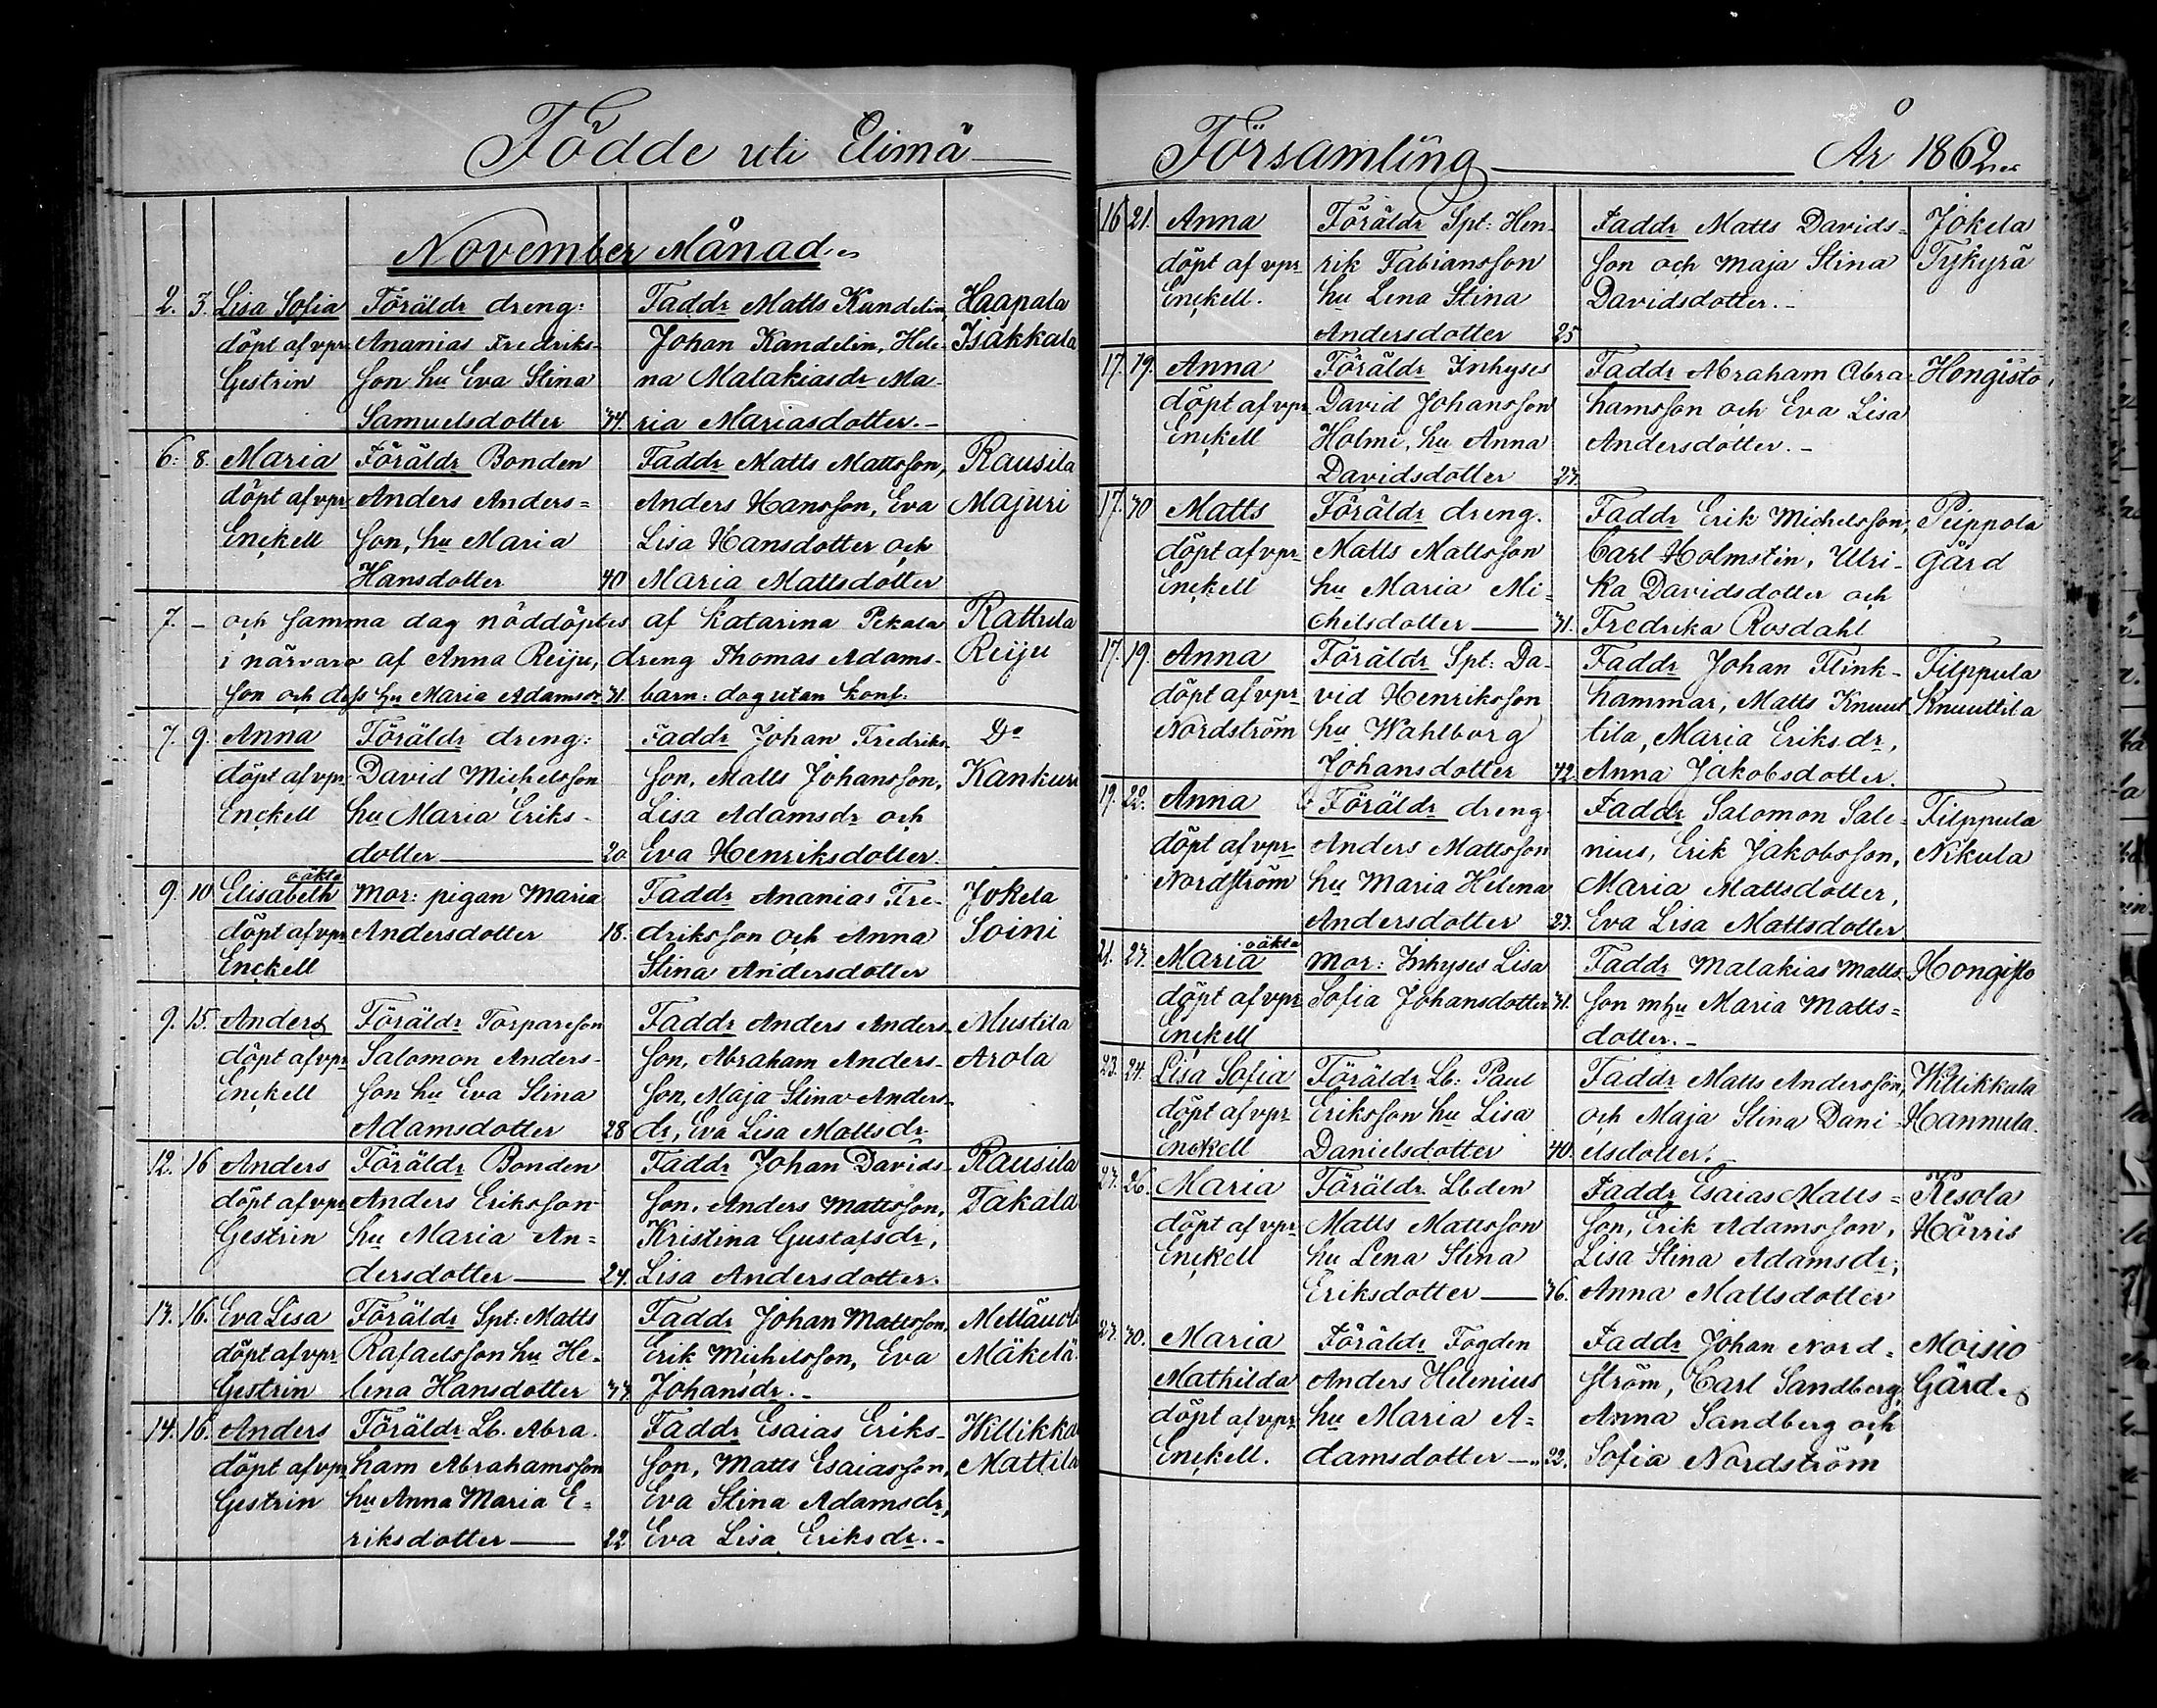 Födde uti Elimä
November Månad
2. 3. Lisa Sofia Föräldr dreng: Faddr Matts Kandelin, Haapala
döpt af vpr Ananias Fredriks- Johan Kandelin, Hele- Isakkala
Gestrin son hu Eva Stina na Malakiasdr Ma-
Samuelsdotter 34. ria Mariasdotter.-
6. 8. Maria Föräldr Bonden Faddr Matts Mattsson, Rausila
döpt af vpr Anders Anders= Anders Hansson, Eva Majuri
Enckell son, hu Maria Lisa Hansdotter och
Hansdotter 40 Maria Mattsdotter
7. - och samma dag nöddöptes af Katarina Pekala Rattula
i närvaro af Anna Reiju, dreng Thomas Adams- Reiju
son och dess hu Maria Adamsdr 31. barn: dog utan konf.
7. 9. Anna Föräldr dreng: Faddr Johan Fredriks- Do
döpt af vpr David Michelsson son, Matts Johansson, Kankuri
Enckell hu Maria Eriks- Lisa Adamsdr och
dotter 20 Eva Henriksdotter.
oäkta
9. 10 Elisabeth Mor: pigan Maria Faddr Ananias Fre- Jokela
döpt af vpr Andersdotter 18. driksson och Anna Soini
Enckell Stina Andersdotter
9. 15. Anders Föräldr Torpareson Faddr Anders Anders- Mustila
döpt af vpr Salomon Anders- son, Abraham Anders- Arola
Enckell son hu Eva Stina son, Maja Stina Anders-
Adamsdotter 28 dr, Eva Lisa Mattsdr
12. 16 Anders Föräldr Bonden Faddr Johan Davids- Rausila
döpt af vpr Anders Eriksson son, Anders Mattsson, Takala
Gestrin hu Maria An= Kristina Gustafsdr,
dersdotter 24. Lisa Andersdotter.
13. 16. Eva Lisa Föräldr Spt: Matts Faddr Johan Mattsson,
döpt af vpr Rafaelsson hu He- Erik Michelsson, Eva Mäkelä
Gestrin lena Hansdotter 33. Johansdr.-
14. 16. Anders Föräldr Lb. Abra- Faddr Esaias Eriks- Willikkala
döpt af vpr ham Abrahamsson son, Matts Esaiasson, Mattila
Gestrin hu Anna Maria E= Eva Stina Adamsdr,
riksdotter 22 Eva Lisa Eriksdr.-
Församling År 1862
16 21. Anna Föräldr Spt: Hen- Faddr Matts Davids- Jokela
döpt af vpr rik Fabiansson son och Maja Stina Tykyrä
Enckell. hu Lena Stina Davidsdotter.-
Andersdotter 25
17. 19. Anna Föräldr Inhyses Faddr Abraham Abra- Hongisto
döpt af vpr David Johansson hamsson och Eva Lisa
Enckell Holmi, hu Anna Andersdotter.-
Davidsdotter 23.
17. 30 Matts Föräldr dreng. Faddr Erik Michelsson, Peippola
döpt af vpr Matts Mattsson Carl Holmstén, Ulri- gård
Enckell hu Maria Mi- ka Davidsdotter och
chelsdotter 31. Fredrika Rosdahl
17. 19. Anna Föräldr Spt: Da- Faddr Johan Flink- Filppula
döpt af vpr vid Henriksson hammar, Matts Knuut- Knuuttila
Nordström hu Wahlborg tila, Maria Eriksdr,
Johansdotter 42. Anna Jakobsdotter.
19. 22. Anna Föräldr dreng Faddr Salomon Sale- Filppula
döpt af vpr Anders Mattsson nius, Erik Jakobsson, Nikula
Nordström hu Maria Helena Maria Mattsdotter,
Andersdotter 23. Eva Lisa Mattsdotter
oäkta
21. 23. Maria Mor: Inhyses Lisa Faddr Malakias Matts- Hongisto
döpt af vpr Sofia Johansdotter 31. son mhu Maria Matts=
Enckell dotter.-
23. 24. Lisa Sofia Föräldr Lb: Paul Faddr Matts Andersson, Willikkala
döpt af vpr Eriksson hu Lisa och Maja Stina Dani- Hannula.
Enckell Danielsdotter 40. elsdotter.
23. 26. Maria Föräldr Lbden Faddr Esaias Matts= Resola
döpt af vpr Matts Mattsson son, Erik Adamsson, Hörris
Enckell hu Lena Stina Lisa Stina Adamsdr,
Eriksdotter 36. Anna Mattsdotter
23. 30. Maria Föräldr Fogden Faddr Johan Nord= Moisio
Mathilda Anders Helenius ström, Carl Sandberg, Gård
döpt af vpr hu Maria A= Anna Sandberg och
Enckell. damsdotter 22. Sofia Nordström